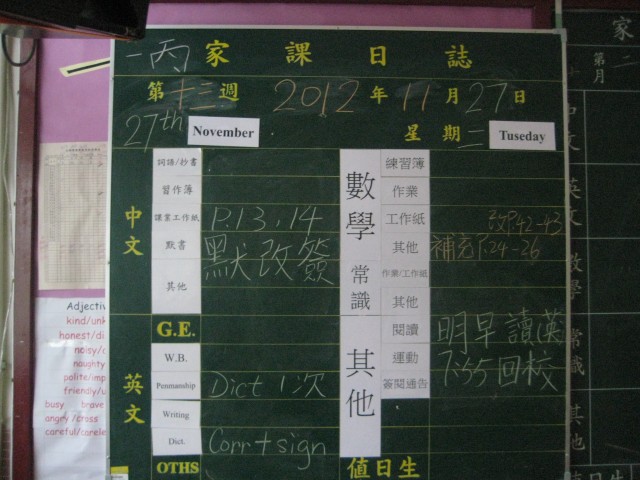 一丙 家課日誌
第十三週 2012年11月27日
27th November 星期二 Tuseday
中文
詞語/抄書
習作簿
課業工作紙 P.13,14
默書 默改簽
其他
英文
G.E.
W.B.
Penmanship Dict 1次
Writing
Dict. Corr + sign
OTHS
數學
練習簿
作業
工作紙 改P.42-43
其他 補充P.24-26
常識
作業/工作紙
其他
其他
閱讀 明早讀漢
運動 7:55回校
簽閱通告
值日生
家
第二
月
中文
英文
數學
常識
其他
值日生
Adjectiv
kind/unk
honest/di
noisy/
naughty
polite/imp
friendly/u
busy brave
angry/cross
careful/carele